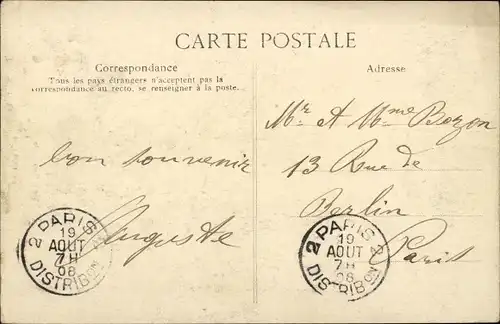 CARTE POSTALE
Correspondance
Tous les pays étrangers n'acceptent pas la
correspondance au recto, se renseigner à la poste.
Adresse
Mr et Mme Bozon
13 Rue de
Berlin
Paris
bon souvenir
Auguste
2 PARIS 2
19
AOUT
7H
08
DISTRIBON
2 PARIS 2
19
AOUT
7H
08
DISTRIBON